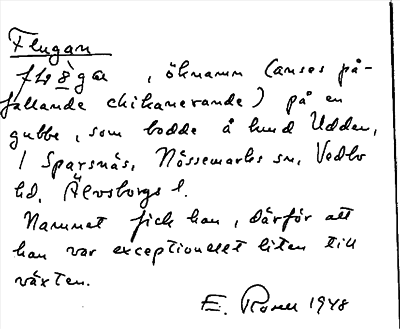 Flugan
, öknamn (anses på-
fallande chikanerande) på en
gubbe, som bodde å lund Udden,
/ Sparsnäs, Nössemarks sn, Vedbo
hd, Älvsborgs l.
Namnet fick han, därför att
han var exceptionellt liten till
växten.
E. Rosell 1948